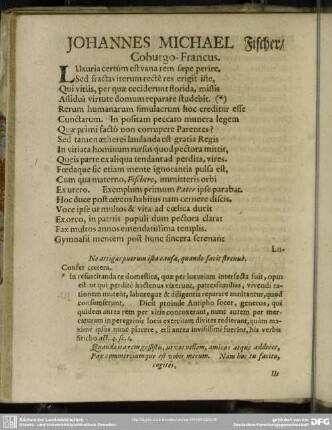 JOHANNES MICHAEL Fischer/
Coburgo-Francus.
LUxuria certùm est vana rem sæpe perire,
Sed fractas iterum rectè res erigit iste,
Qui vitiis, per quæ ceciderunt florida, missis
Assiduâ virtute domum reparare studebit. (*)
Rerum humanarum simulacrum hoc creditur esse
Cunctarum. In positam peccato munera legem
Quæ primi factò non corrupere Parentes?
Sed tamen ætherei laudanda est gratia Regis
In vitiata hominum rursus quod pectora mittit,
Queis parte ex aliqua tendant ad perdita, vires.
Fœdaque sic etiam mente ignorantia pulsa est,
Cum qua materno, Fischere, immitteris orbi
Ex utero. Exemplum primum Pater ipse parabat.
Hoc duce post cœcos habitus nam cernere discis.
Voce ipse ut multos & vita ad cœlica ducit
Exorco, in patriis populi dum pectora clarat
Fax multos annos emendatissima templis.
Gymnasii mentem post hunc sincera serenant
Lu-
Ne attigas puerum istac causa, quando facit strenuè.
Confer cœtera.
* In resuscitanda re domestica, quæ per luxuriam intersecta fuit, opus
est ut qui perditè hactenus vixerunt, patrefamilias, vivendi ra-
tionem mutent, laboreque & diligentia reparare annitantur, quod
consumserunt. Dicit proinde Antipho socer, generos, qui
quidem antea rem per vitia controverant, nunc autem rem per mer-
caturam in peregrinis locis exercitam divites redierant, quùm ma-
ximè ipsius nunc placere, etsi antea invisissimi fuerint, his verbis
sticho act. 4. sc. 1.
Quando ita rem gesistis, ut vos vellem, amicos atque addecet,
Pax commerciumque est vobis mecum. Nam hoc tu facito,
cogites,
Ut